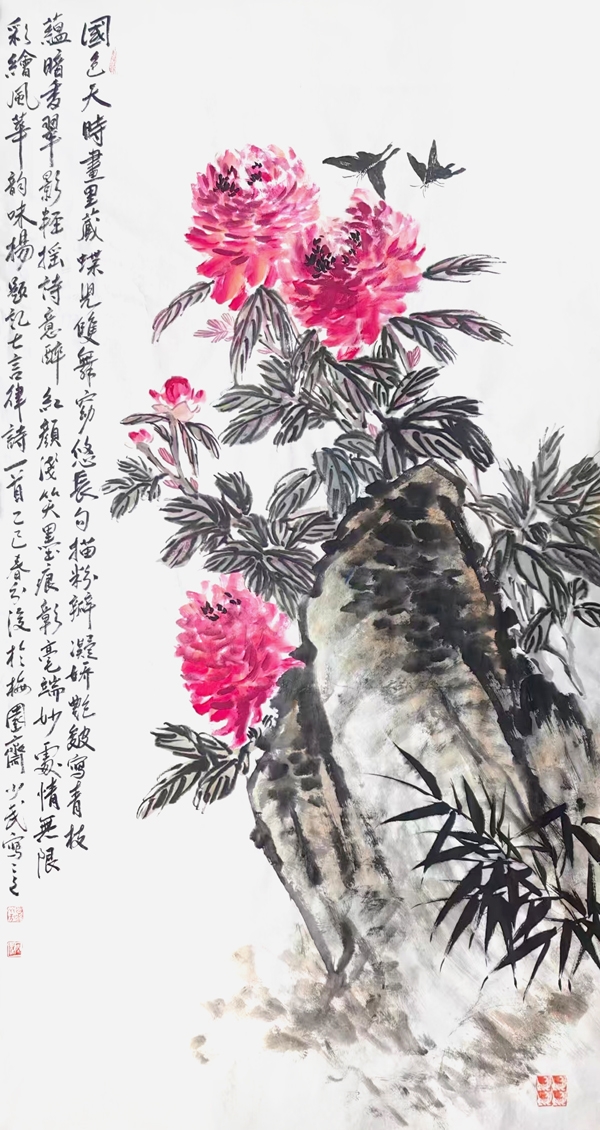 國色天時畫里藏蝶兒雙舞窈悠長勾描粉瓣凝妍艷皴寫青枝
蘊暗香翠影輕摇詩意醉紅顏淺笑墨痕彰毫端妙處情無限
彩繪風華韵味揚題記七言律詩一首乙巳春後於梅園齋少民寫之